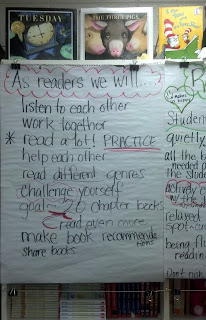 TUESDAY
THE THREE PIGS
As readers we will...
listen to each other
work together
* read a lot! PRACTICE
help each other
read different genres
challenge yourself
goal → 20 chapter books
read even more
make book recommendations
share books
Student
quietly
all the b
needed
the stude
actively
relayed
spot
being flu
reading
Don't rush